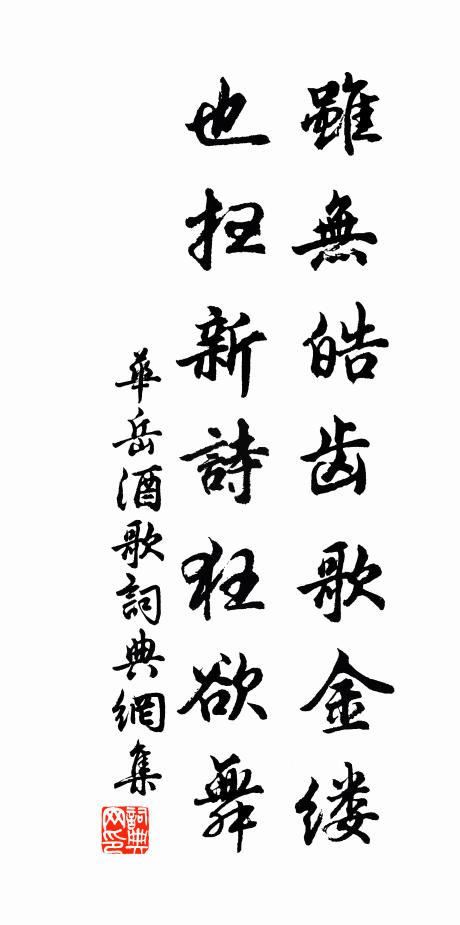 雖無皓齿歌金缕
也抂新詩狂欲舞
華岳酒歌詞典網集
詞典网印